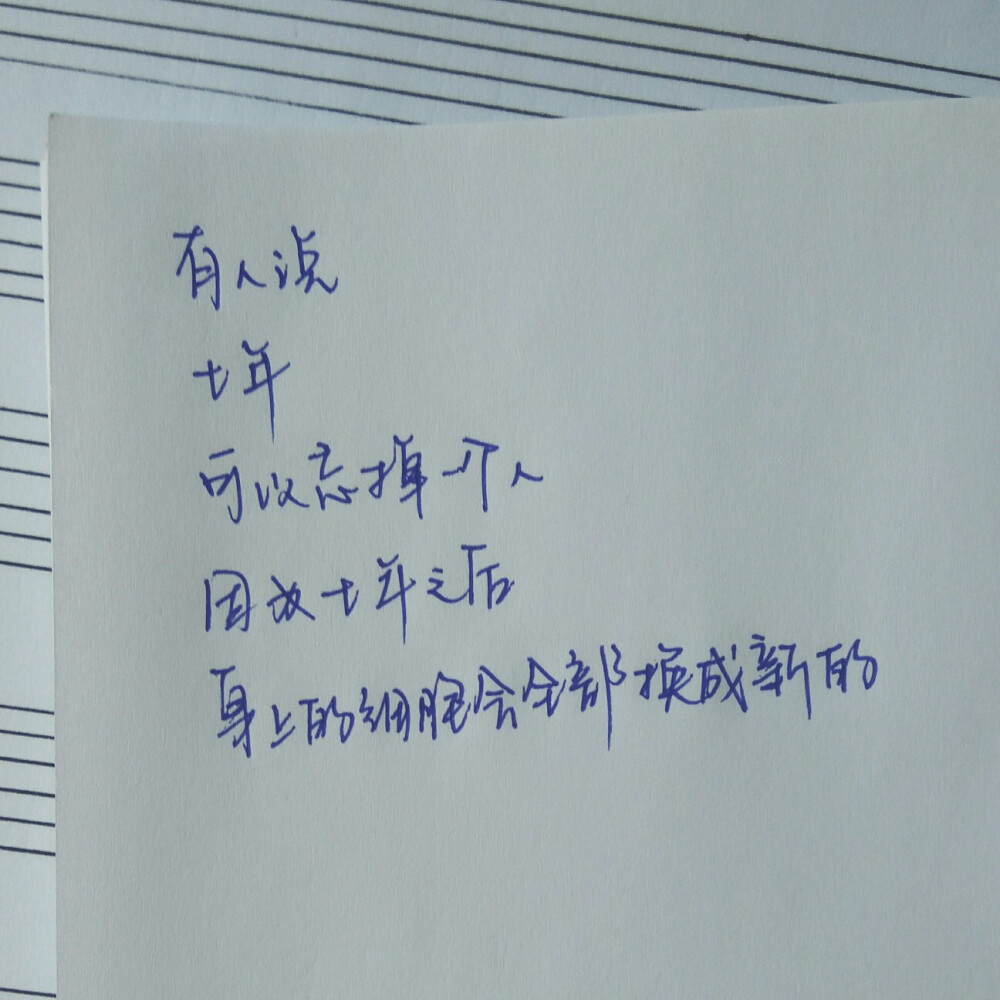 有人说
七年
可以忘掉一个人
因为七年之后
身上的细胞会全部换成新的